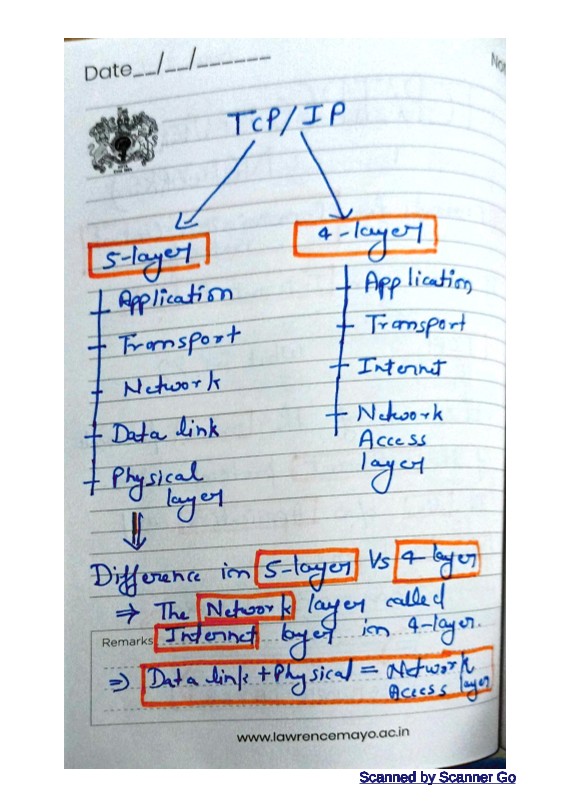 Date__/__/______
TCP/IP
5-layer
4-layer
Application
Transport
Network
Data link
Physical
layer
Application
Transport
Internet
Network
Access
layer
Difference in 5-layer Vs 4-layer
⇒ The Network layer called
Remarks Internet layer in 4-layer.
⇒ Data link + Physical = Network
Access layer
www.lawrencemayo.ac.in
Scanned by Scanner Go